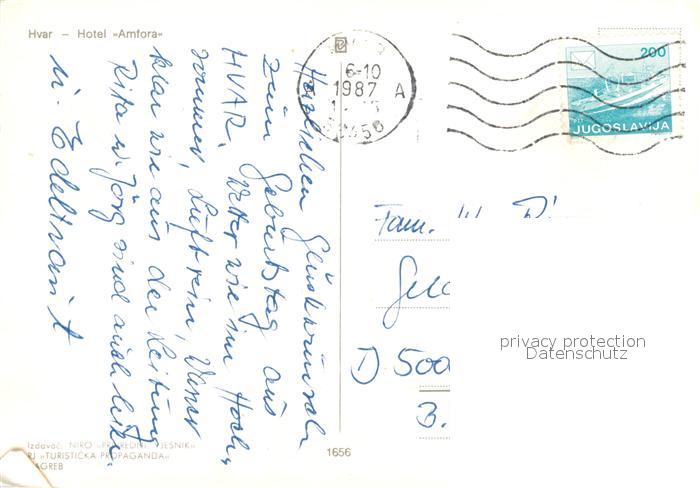 Hvar – Hotel »Amfora«
Herzlichen Glückwunsch
zum Geburtstag aus
HVAR. Wetter wie im Hoch-
sommer, Luft rein, Wasser
klar wie aus der Leitung
Rita u. Jörg sind auch
u. Edeltraut
6-10
1987 A
200
JUGOSLAVIJA
Fam.
D 500
B.
privacy protection
Datenschutz
Izdavač: NIRO »PRIVREDNI VJESNIK«
RJ »TURISTIČKA PROPAGANDA«
ZAGREB
1656